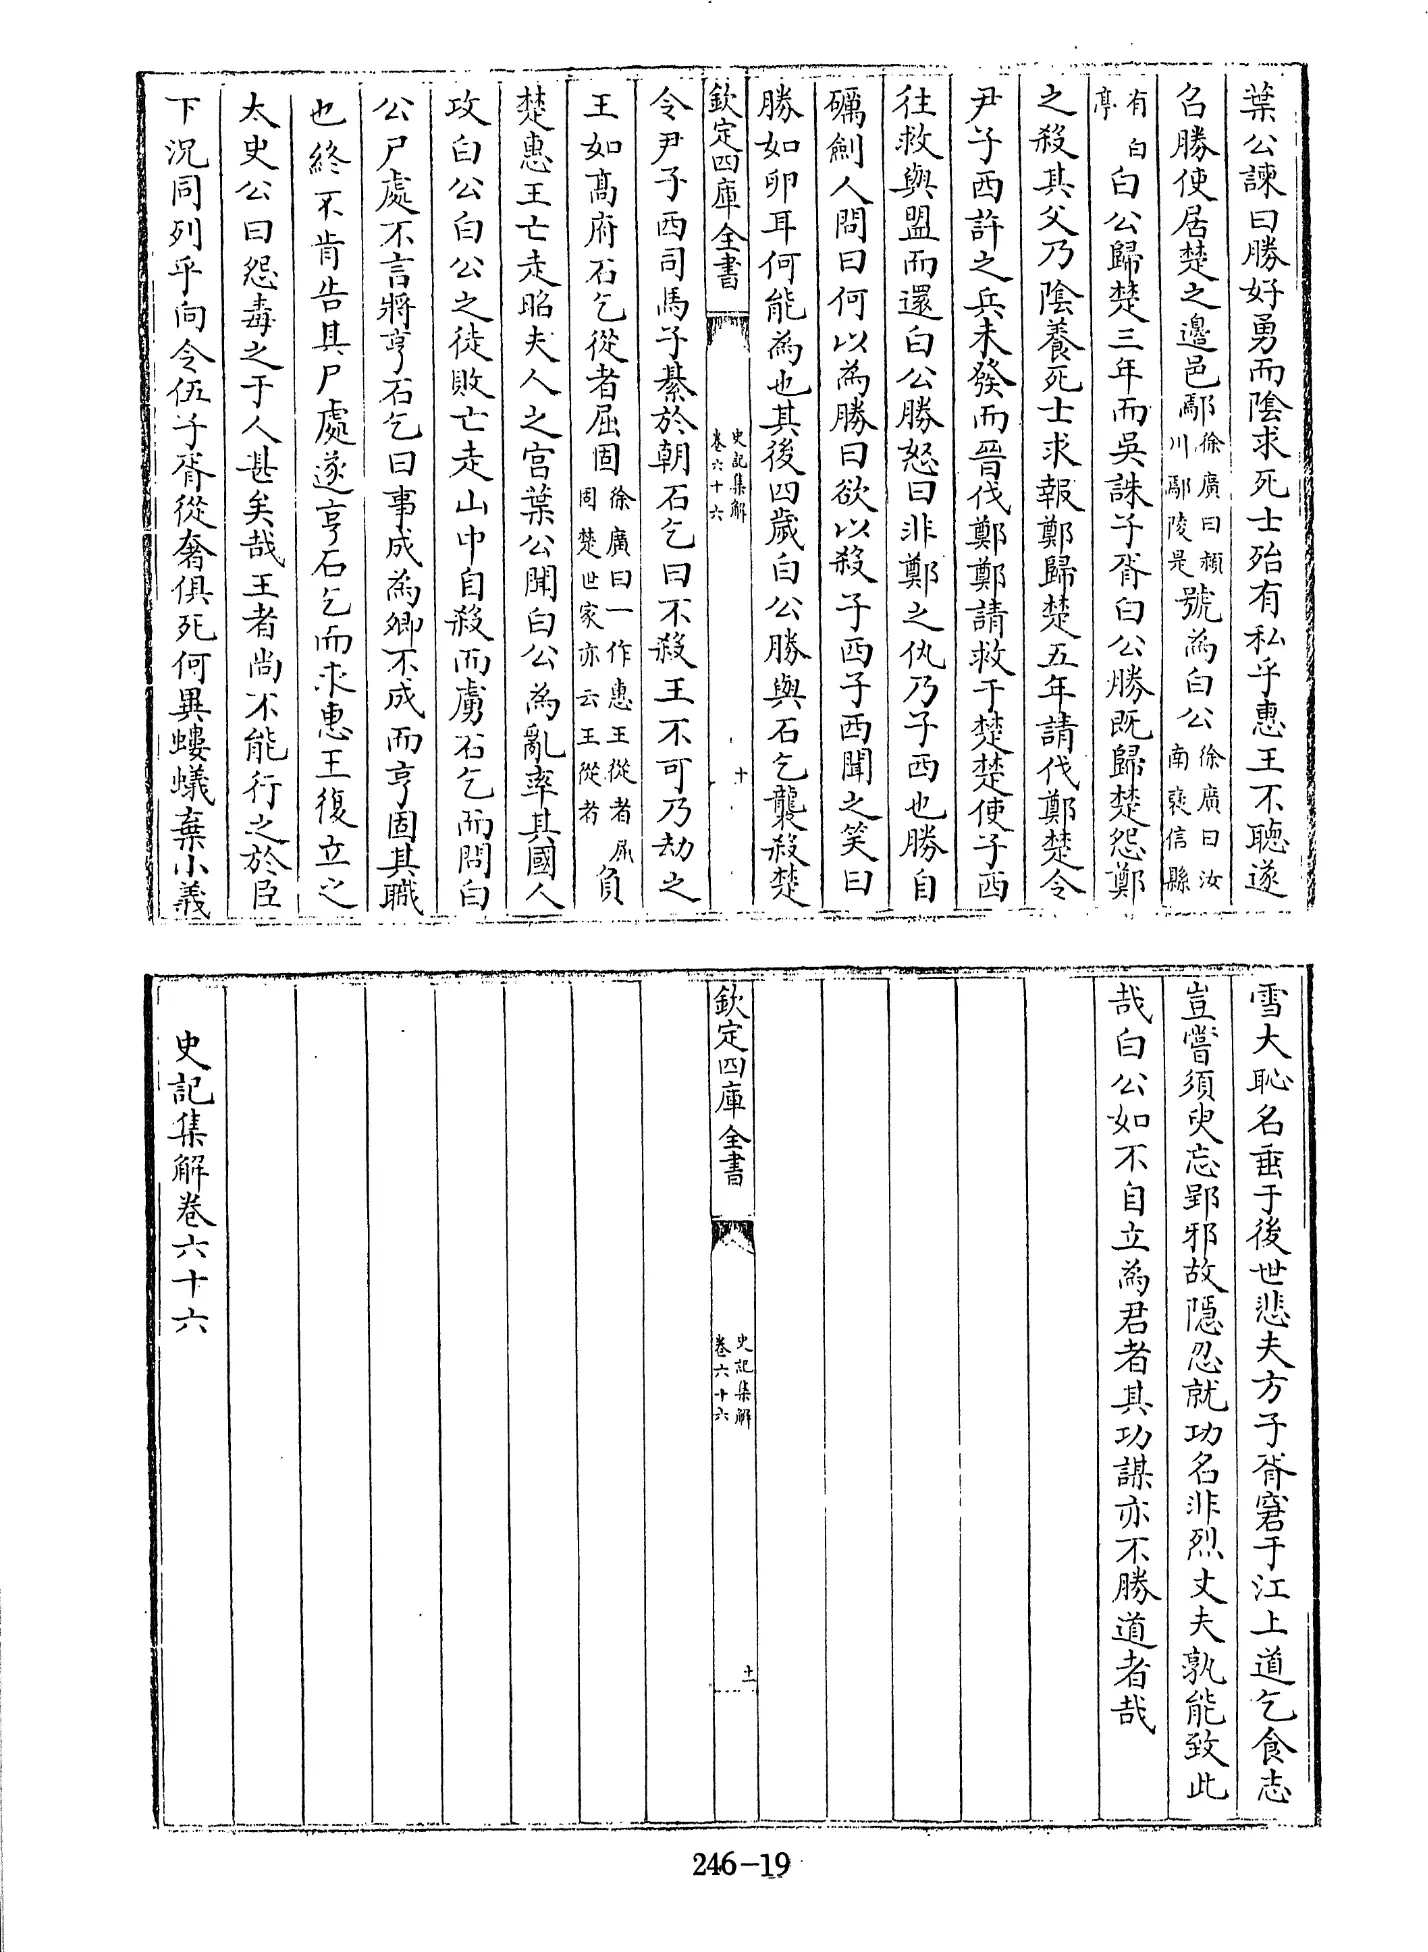 葉公諫曰勝好勇而陰求死士殆有私乎惠王不聽遂
召勝使居楚之邉邑鄢徐廣曰潁川鄢陵是號為白公徐廣曰汝南襃信縣
有白亭白公歸楚三年而吳誅子胥白公勝既歸楚怨鄭
之殺其父乃陰養死士求報鄭歸楚五年請伐鄭楚令
尹子西許之兵未發而晉伐鄭鄭請救于楚楚使子西
往救與盟而還白公勝怒曰非鄭之仇乃子西也勝自
礪劍人問曰何以為勝曰欲以殺子西子西聞之笑曰
勝如卵耳何能為也其後四歲白公勝與石乞襲殺楚
欽定四庫全書
史記集解
卷六十六
十
令尹子西司馬子綦於朝石乞曰不殺王不可乃劫之
王如髙府石乞從者屈固徐廣曰一作惠王從者屈固楚世家亦云王從者負
楚惠王亡走昭夫人之宮葉公聞白公為亂率其國人
攻白公白公之徒敗亡走山中自殺而虜石乞而問白
公尸處不言將亨石乞曰事成為卿不成而亨固其職
也終不肯告其尸處遂亨石乞而求惠王復立之
太史公曰怨毒之于人甚矣哉王者尚不能行之於臣
下況同列乎向令伍子胥從奢俱死何異螻蟻棄小義
雪大恥名垂于後世悲夫方子胥窘于江上道乞食志
豈嘗須臾忘郢邪故隱忍就功名非烈丈夫孰能致此
哉白公如不自立為君者其功謀亦不勝道者哉
欽定四庫全書
史記集解
卷六十六
十一
史記集解卷六十六
246-19